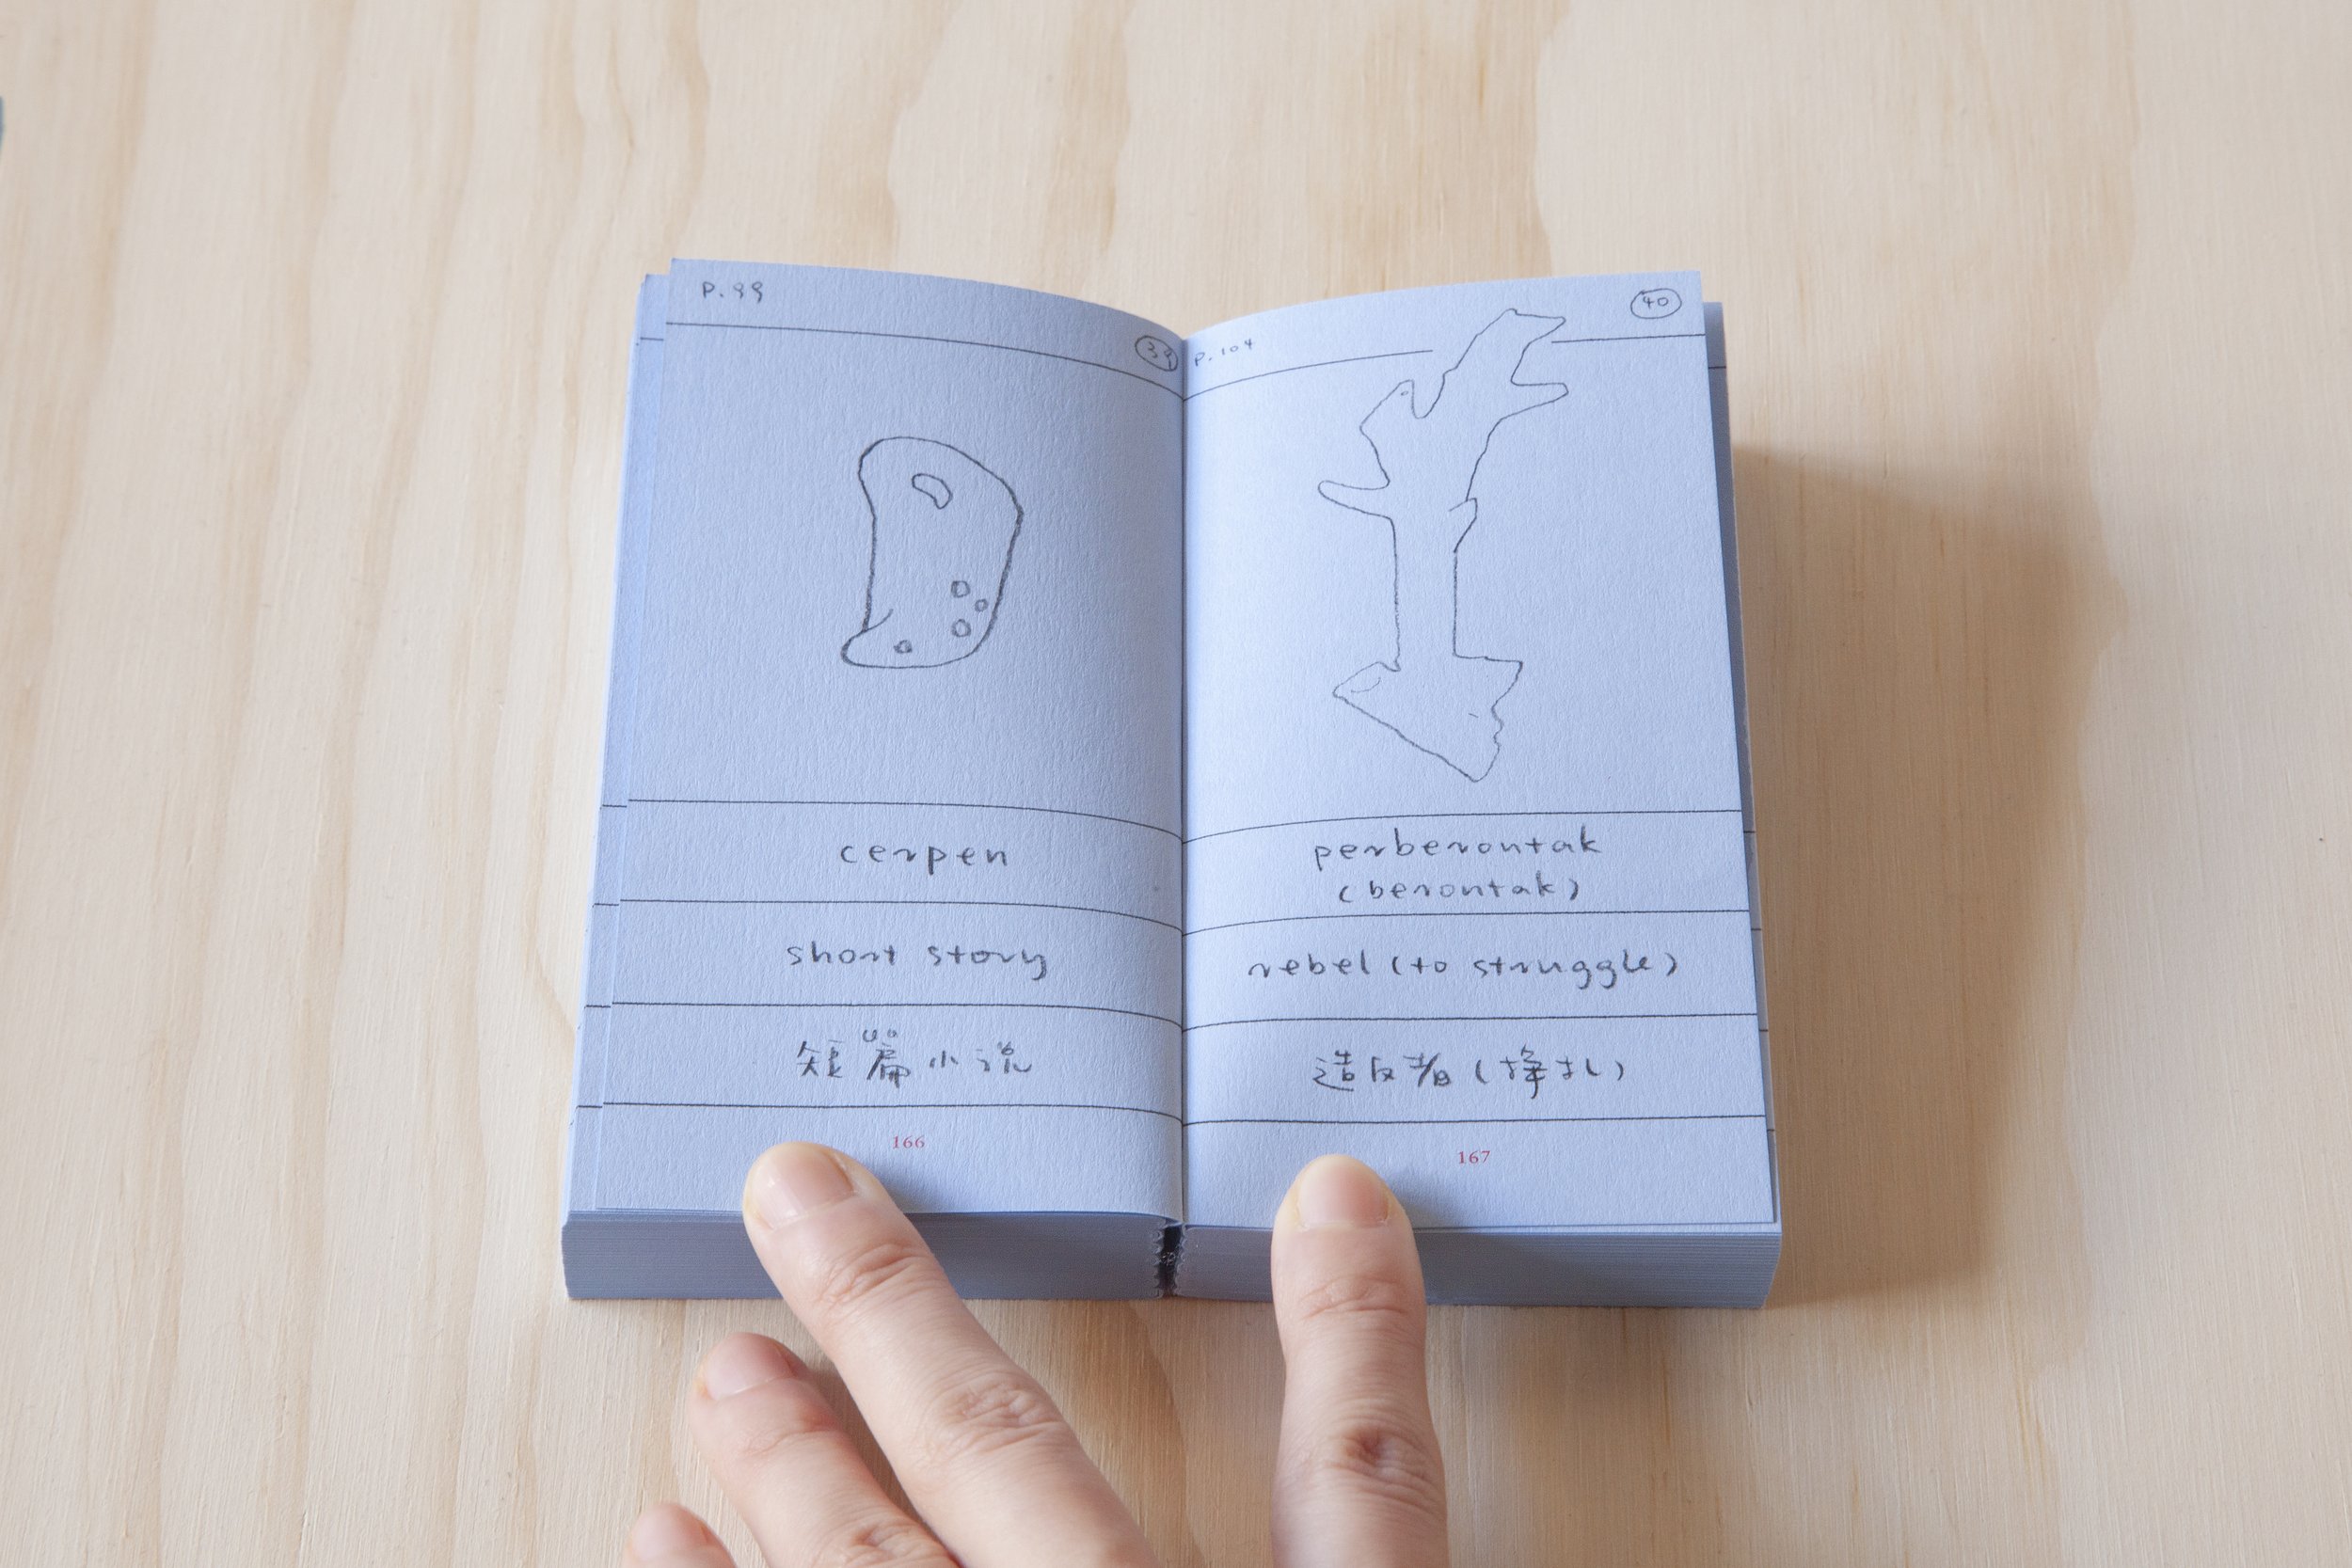 P.99
39
cerpen
short story
短篇小说
166
P.104
40
perberontak
(berontak)
rebel (to struggle)
造反者(挣扎)
167